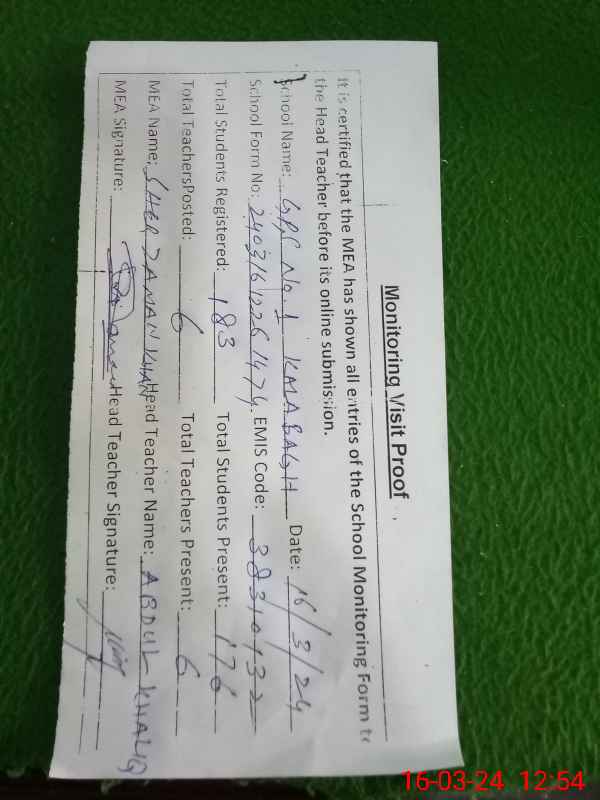 Monitoring Visit Proof
It is certified that the MEA has shown all entries of the School Monitoring Form to
the Head Teacher before its online submission.
School Name: GPS No.1 KALABAGH Date: 16/3/24
School Form No: 24031612261474 EMIS Code: 38310132
Total Students Registered: 183 Total Students Present: 176
Total TeachersPosted: 6 Total Teachers Present: 6
MEA Name: SHER ZAMAN KHAN Head Teacher Name: ABDUL KHALIQ
MEA Signature: Head Teacher Signature:
16-03-24 12:54